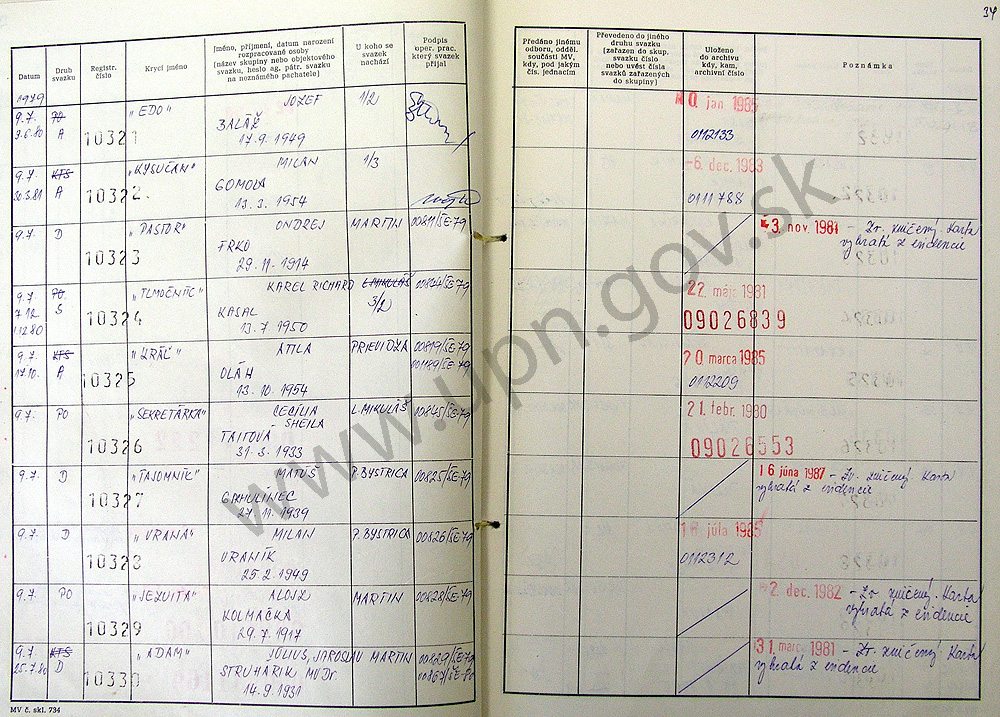 34
Datum
Druh svazku
Registr. číslo
Krycí jméno
Jméno, příjmení, datum narození
rozpracované osoby
(název skupiny nebo objektového
svazku, heslo ag. pátr. svazku
na neznámého pachatele)
U koho se
svazek
nachází
Podpis
oper. prac.
který svazek
přijal
Předáno jinému
odboru, odděl.
součásti MV,
kdy, pod jakým
čís. jednacím
Převedeno do jiného
druhu svazku
(zařazen do skup.
svazku číslo
nebo uvést čísla
svazků zařazených
do skupiny)
Uloženo
do archivu
kdy, kam,
archivní číslo
Poznámka
1979
9.7. PO "EDO" JOZEF 1/2
A 10321 BALÁŽ
17.9.1949
jan 1985
0112133
9.7. KTS "KYSUČAN" MILAN 1/3
30.3.81 A 10322 GOMOLA
13.3.1954
6. dec. 1983
0111788
9.7. D "PASTOR" ONDREJ MARTIN 00811/SE-79
10323 FRKO
29.11.1914
3. nov. 1981 - Zv. zničený Karta
vyňatá z evidencie
9.7. PO "TLMOČNÍK" KAREL RICHARD L.MIKULÁŠ 00824/SE-79
7.12. S 3/2
1.12.80 10324 KASAL
13.7.1950
22. mája 1981
09026839
9.7. KTS "KRÁĽ" ATILA PRIEVIDZA 00819/SE-79
17.10. A 10325 OLÁH 001189/SE-79
13.10.1954
20. marca 1985
0112209
9.7. PO "SEKRETÁRKA" CECÍLIA L.MIKULÁŠ 00845/SE-79
SHEILA
10326 TAITOVÁ
31.3.1933
21. febr. 1980
09026553
9.7. D "TAJOMNÍK" MATÚŠ P.BYSTRICA 00825/SE-79
10327
27.11.1939
16 júna 1987 - Zv. zničený Karta
vyňatá z evidencie
9.7. D "VRANA" MILAN P.BYSTRICA 00826/SE-79
10328 VRANÍK
25.2.1949
júla 1985
0112312
9.7 PO "JEZUITA" ALOJZ MARTIN 00828/SE-79
10329 KOLMAČKA
29.7.1917
2. dec. 1982 - Zv. zničený. Karta
vyňatá z evidencie
9.7 KTS "ADAM" JÚLIUS, JAROSLAV MARTIN 00829/SE-79
25.7.80 D 10330 STRUHÁRIK MVDr.
14.9.1931
31. marca 1981 - Zv. zničený Karta
vyňatá z evidencie
MV č. skl. 734
www.upn.gov.sk